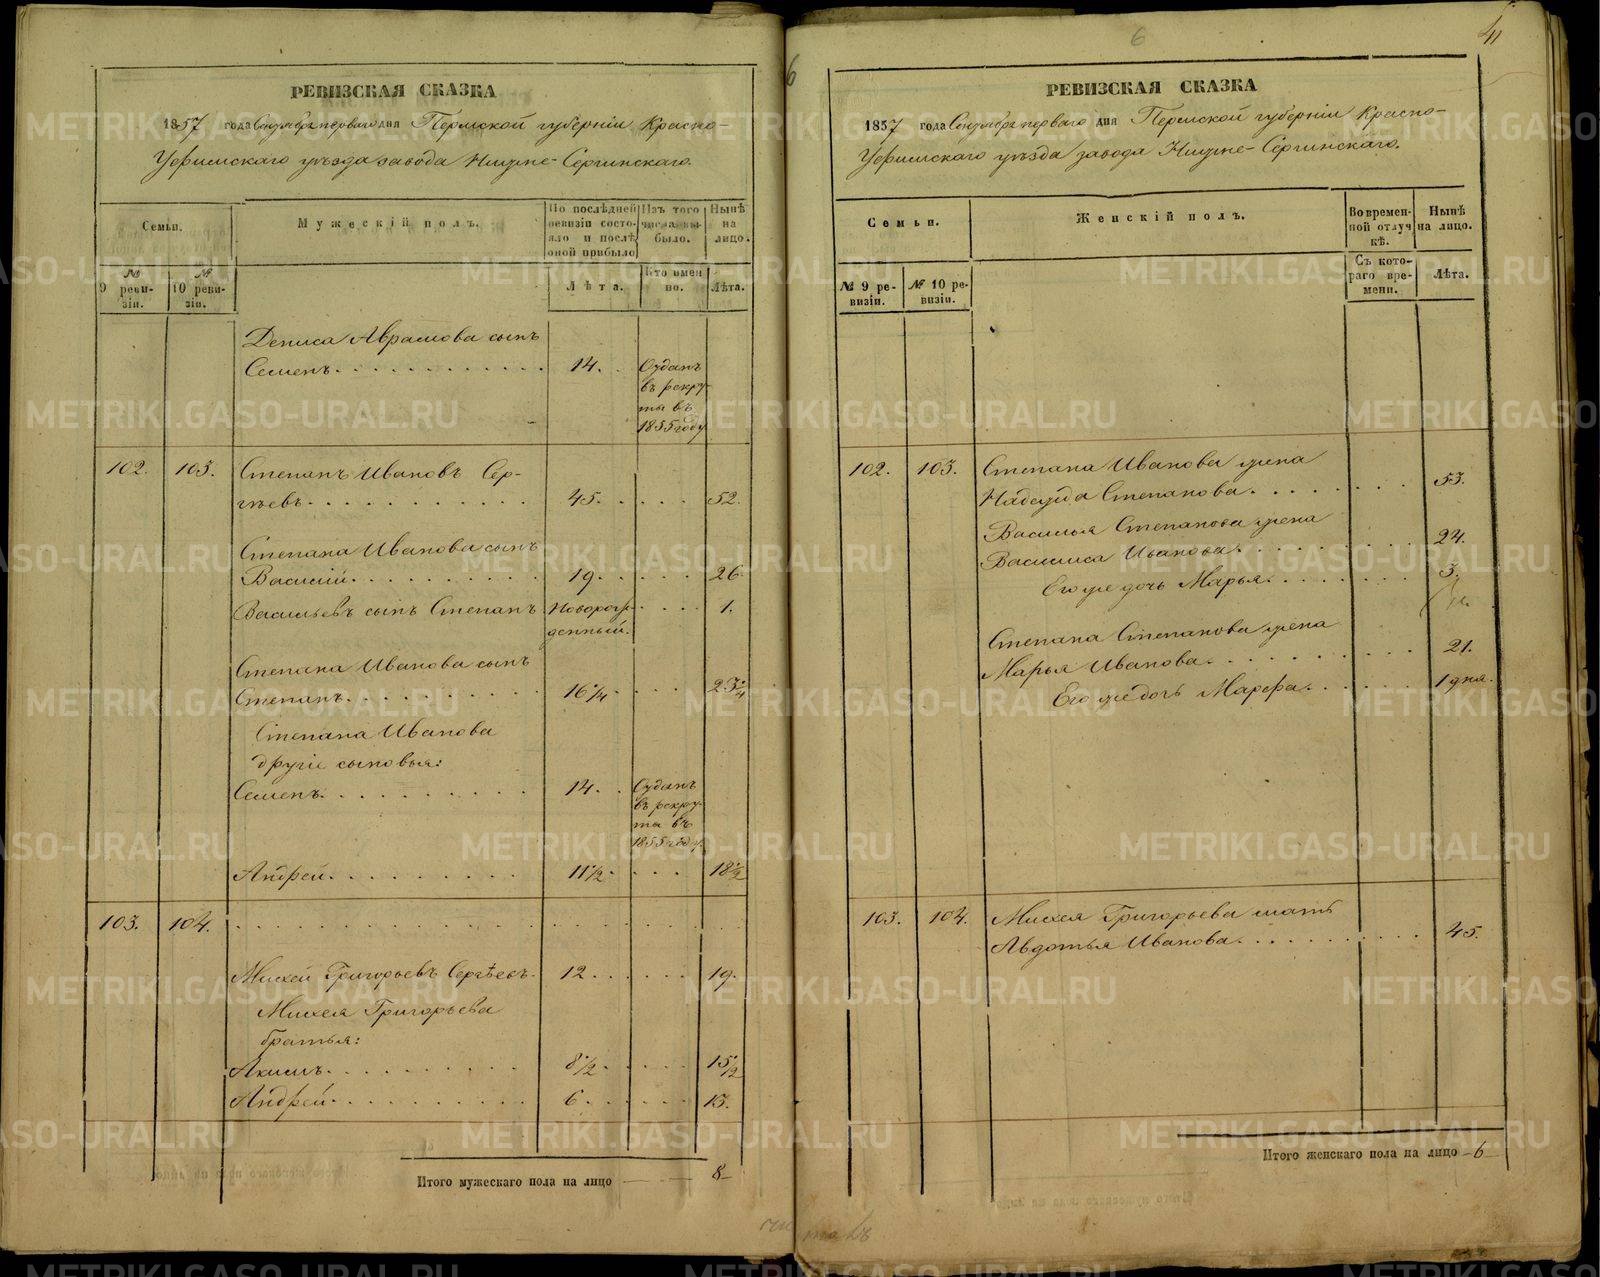 РЕВИЗСКАЯ СКАЗКА
1857 года Сентября первого дня Пермской губерніи Красно-
Уфимскаго уѣзда завода Нижне-Сергинскаго.
Семьи.
Мужескій полъ.
По послѣдней ревизіи состояло и послѣ оной прибыло
Изъ того числа выбыло.
Нынѣ на лицо.
№ 9 ревизіи.
№ 10 ревизіи.
Лѣта.
Кто именно.
Лѣта.
Дениса Аврамова сынъ
Семенъ. 14. Отданъ
въ рекру-
ты въ
1855 году
102. 103. Степанъ Ивановъ Сер-
гѣевъ. 45. 52.
Степана Иванова сынъ
Василій. 19. 26.
Васильевъ сынъ Степанъ Новорож- 1.
денный.
Степана Иванова сынъ
Степанъ. 16 1/4 23 1/4
Степана Иванова
другіе сыновья:
Семенъ. 14. Отданъ
въ рекру-
ты въ
1855 году
Андрей. 11 1/2 18 1/2
103. 104.
Михей Григорьевъ Сергѣевъ. 12. 19.
Михея Григорьева
братья:
Акимъ. 8 1/2 15 1/2
Андрей. 6. 13.
Итого мужескаго пола на лицо 8
6
41
РЕВИЗСКАЯ СКАЗКА
1857 года Сентября перваго дня Пермской губерніи Красно-
Уфимскаго уѣзда завода Нижне-Сергинскаго.
Семьи.
Женскій полъ.
Во временной отлучкѣ.
Нынѣ на лицо.
№ 9 ревизіи.
№ 10 ревизіи.
Съ котораго времени.
Лѣта.
102. 103. Степана Иванова жена
Надежда Степанова. 53.
Василья Степанова жена
Василиса Иванова. 24.
Его же дочь Марья. 3.
Степана Степанова жена
Марья Иванова. 21.
Его же дочь Марфа. 1 дня.
103. 104. Михея Григорьева мать
Авдотья Иванова. 45.
Итого женскаго пола на лицо 6
METRIKI.GASO-URAL.RU